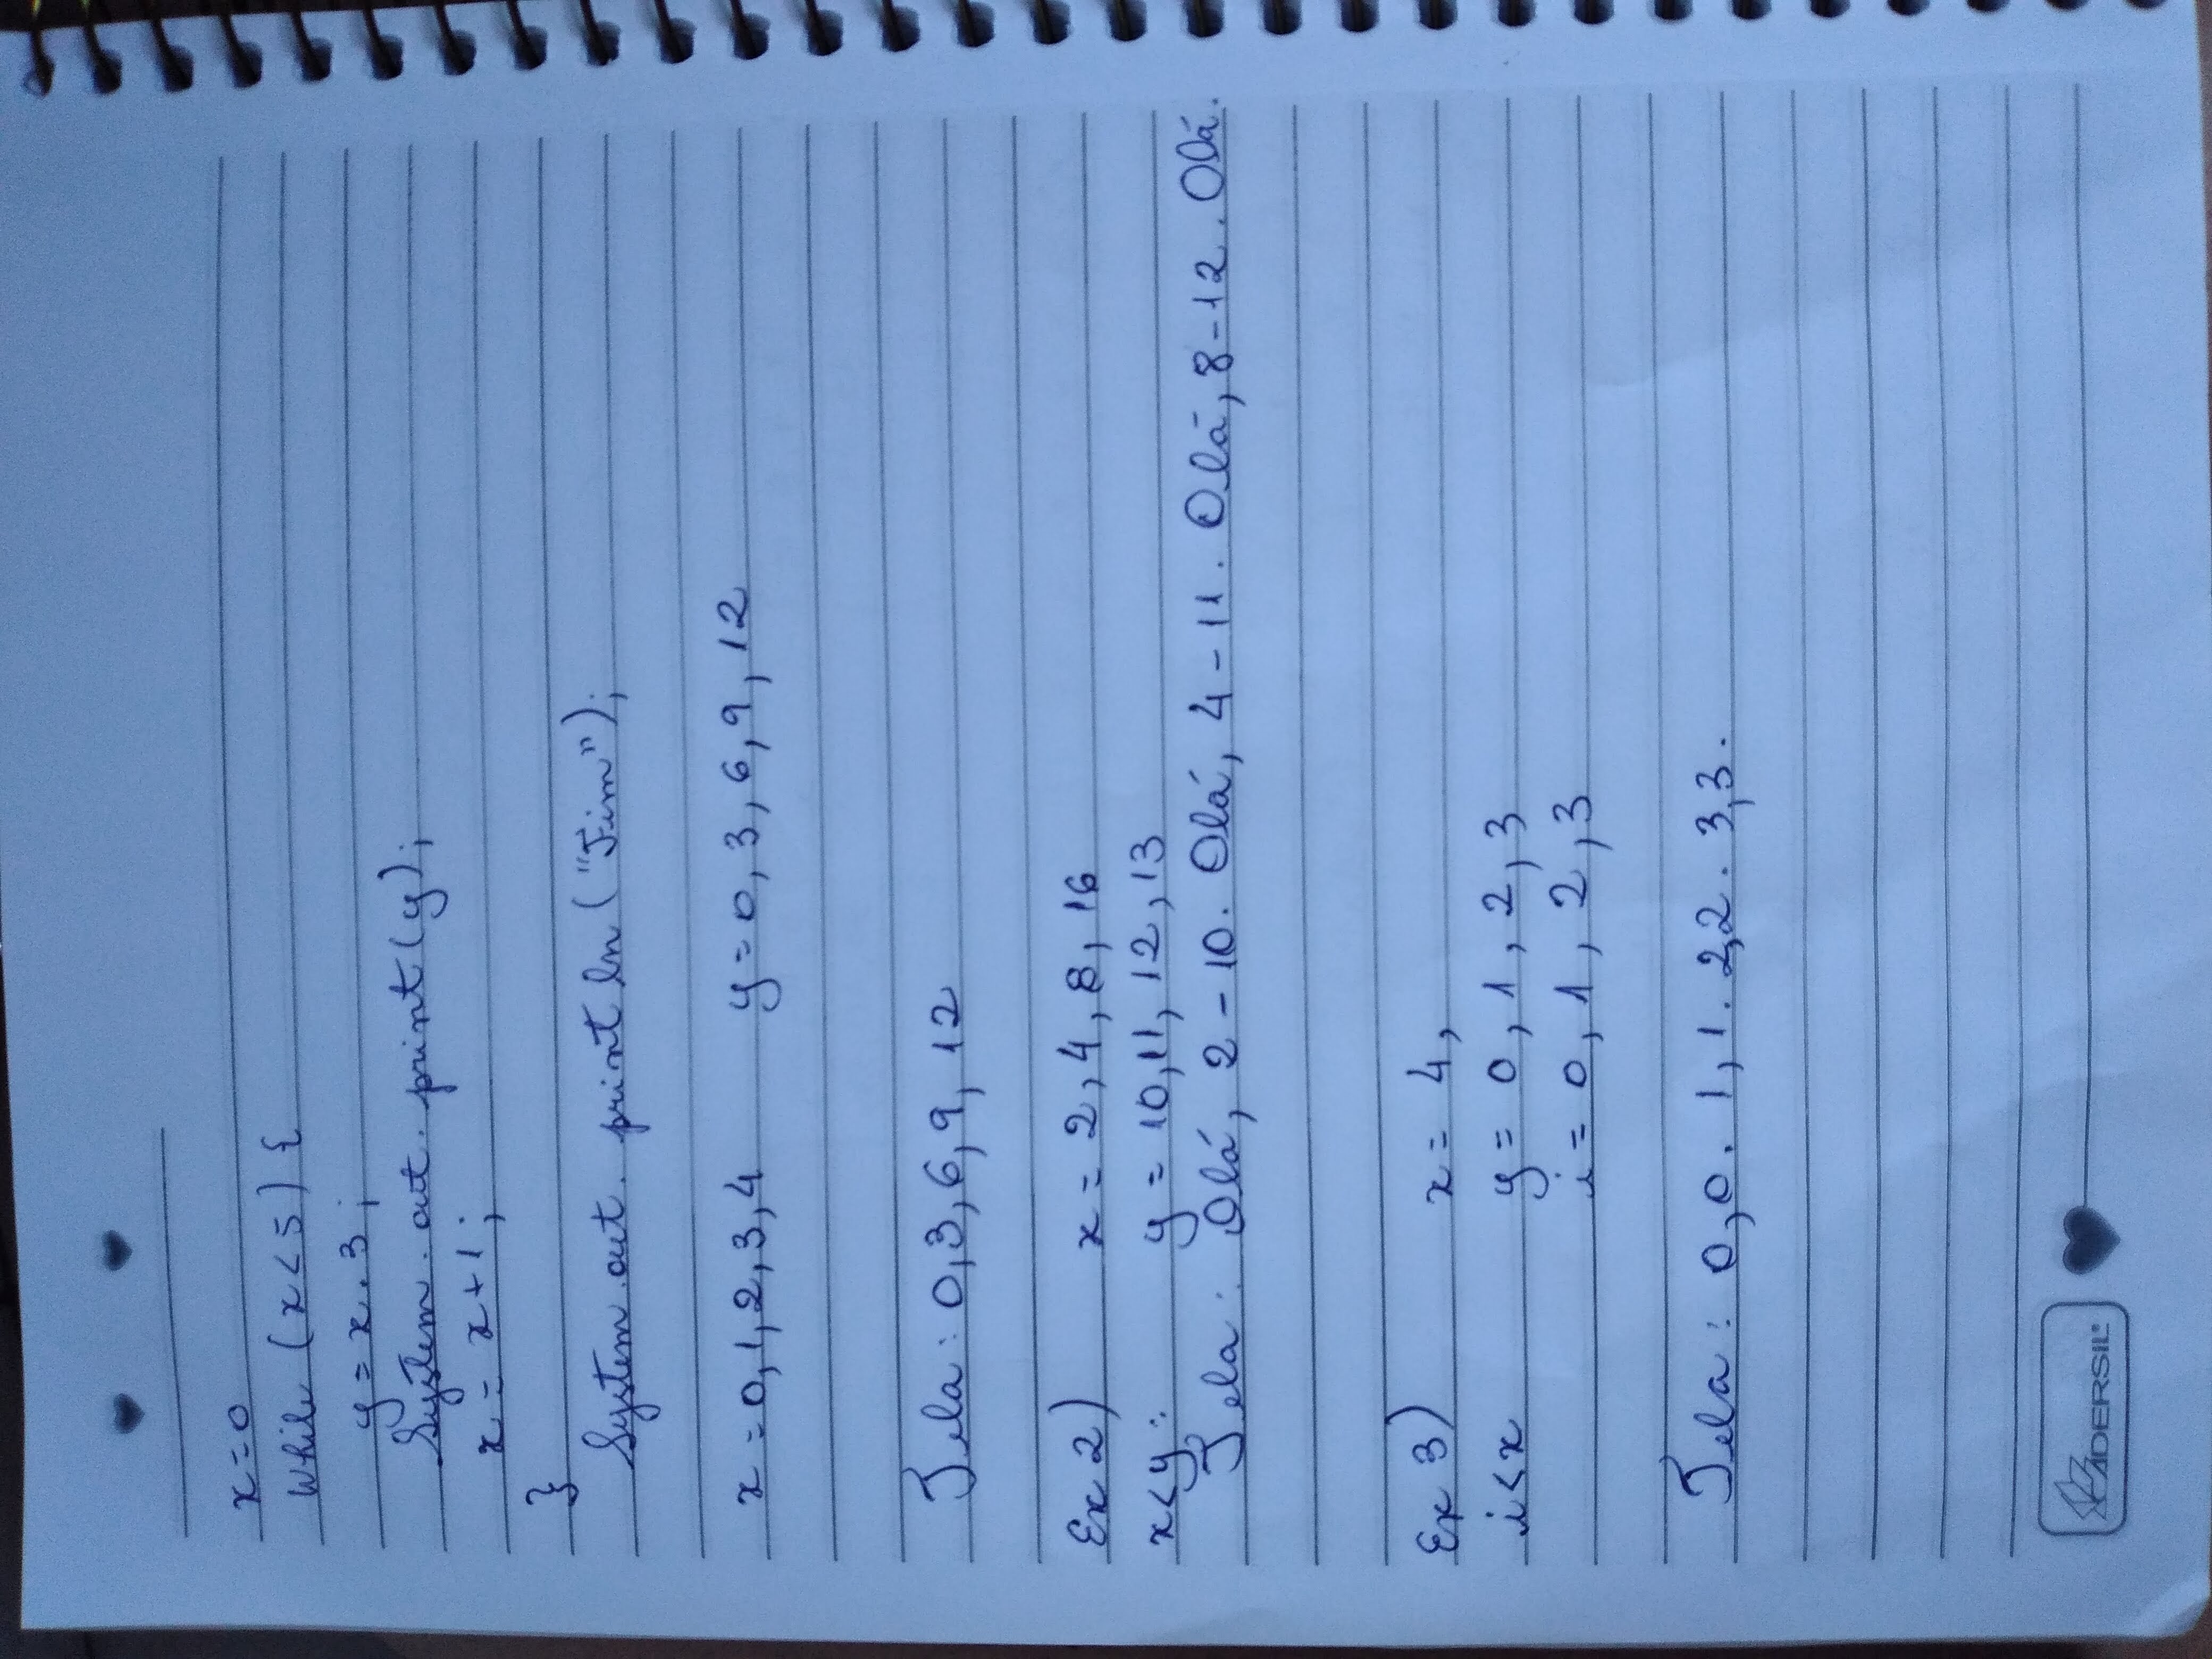 x=0
While (x<5) {
y = x . 3 ;
System . out . print (y) ;
x = x+1 ;
}
System .out . print ln ("Fim") ;
x = 0, 1, 2, 3, 4 y = 0, 3, 6, 9, 12
Tela : 0, 3, 6, 9, 12
Ex 2) x = 2, 4, 8, 16
x<y : y = 10, 11, 12, 13
Tela : Olá, 2 - 10 . Olá, 4 - 11 . Olá, 8 - 12 . Olá.
Ex 3) x = 4,
i<x y = 0, 1, 2, 3
i = 0, 1, 2, 3
Tela : 0,0. 1, 1. 2,2. 3,3.
ADERSIL